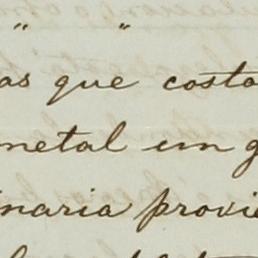 " "
as que costa
metal em g
inaria provi